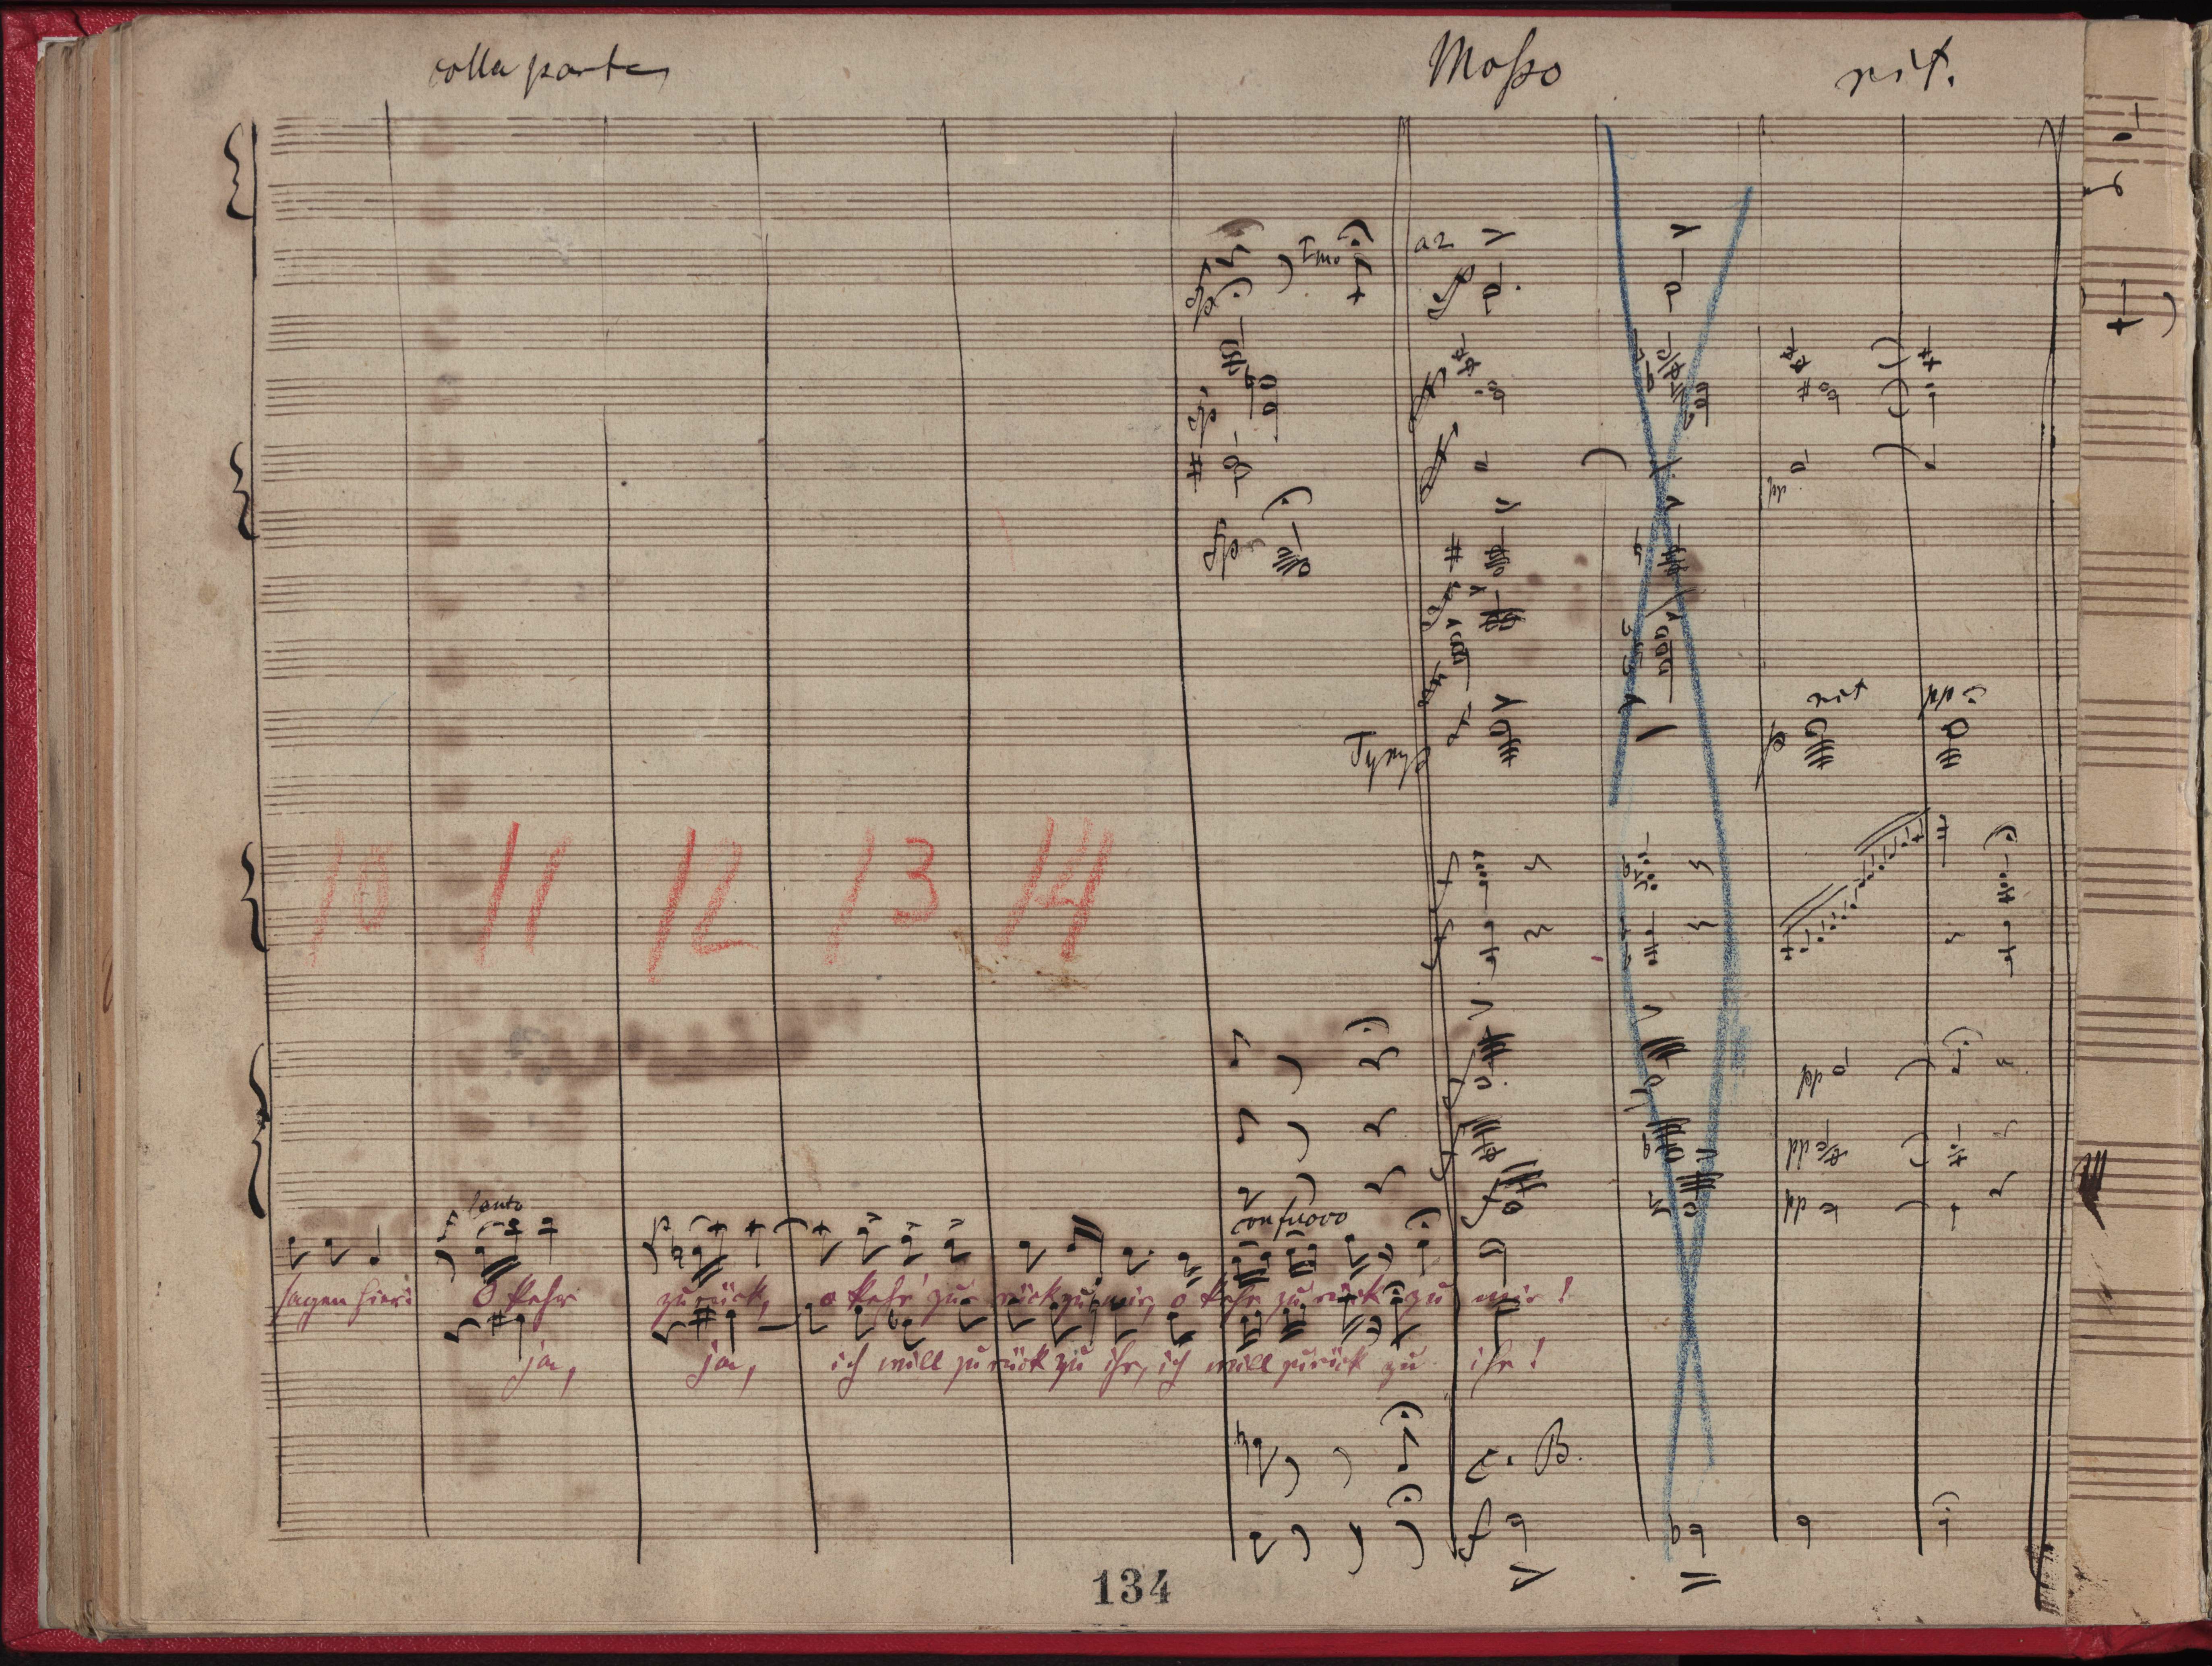 colla parte Mosso rit.
Imo a2
fp
fp
pp
fp
rit pp
Tymp p
10 11 12 13 14
f
f
pp
pp
pp
lento con fuoco f
sagen hier: O kehr zurück, o kehr' zurück zu mir, o kehr zurück zu mir!
ja, ja, ich will zurück zu ihr, ich will zurück zu ihr!
c. B.
f
134